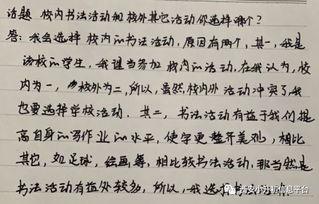 话题 校内书法活动和校外其它活动你选择哪个?
答: 我会选择 校内的书法活动,原因有两个,其一,我是
该校的学生,我理当参加 校内的活动,在我认为,校
内为一,校外为二,所以,虽然校内外 活动冲突了我
也要选择学校活动. 其二,书法活动有益于我们提
高自身的写作业的水平,使字更整齐美观,相比
其它,如足球,绘画等,相比较书法活动,那当然是
书法活动有益处较多,所以,我选择
信息平台